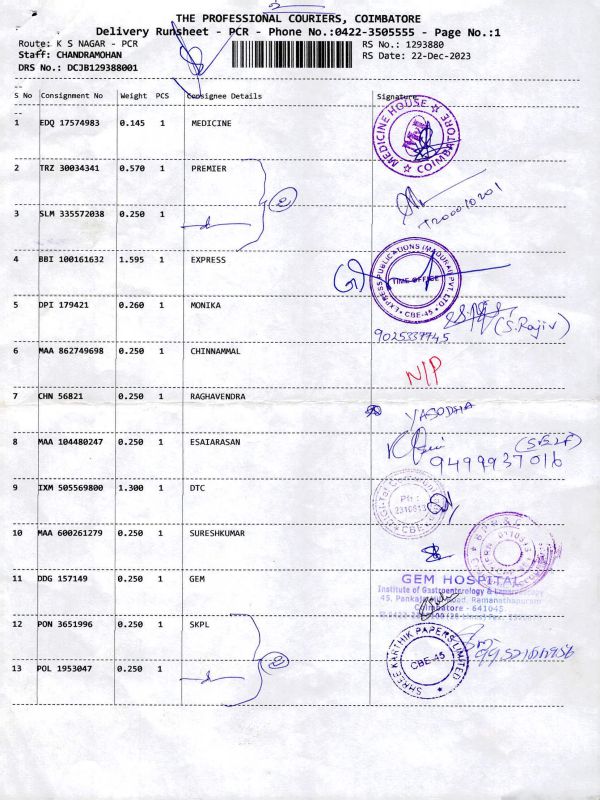 THE PROFESSIONAL COURIERS, COIMBATORE
Delivery Runsheet - PCR - Phone No.:0422-3505555 - Page No.:1
Route: K S NAGAR - PCR
RS No.: 1293880
Staff: CHANDRAMOHAN
RS Date: 22-Dec-2023
DRS No.: DCJB129388001
S No Consignment No Weight PCS Consignee Details Signature
1 EDQ 17574983 0.145 1 MEDICINE
MEDICINE HOUSE COIMBATORE
2 TRZ 30034341 0.570 1 PREMIER
2
3 SLM 335572038 0.250 1
4 BBI 100161632 1.595 1 EXPRESS
EXPRESS PUBLICATIONS (MADURAI) PVT. LTD
TIME OFFICE
CBE-45
5 DPI 179421 0.260 1 MONIKA
(S.Rajiv)
9025337745
6 MAA 862749698 0.250 1 CHINNAMMAL
N/P
7 CHN 56821 0.250 1 RAGHAVENDRA
YASODHA
8 MAA 104480247 0.250 1 ESAIARASAN
(SELF)
9499937016
9 IXM 505569800 1.300 1 DTC
10 MAA 600261279 0.250 1 SURESHKUMAR
11 DDG 157149 0.250 1 GEM
GEM HOSPITAL
Institute of Gastroenterology & Laparoscopy
45, Pankaja Mill Road, Ramanathapuram
Coimbatore - 641045
12 PON 3651996 0.250 1 SKPL
SHREE KARTHIK PAPERS LIMITED
CBE-45
2
13 POL 1953047 0.250 1